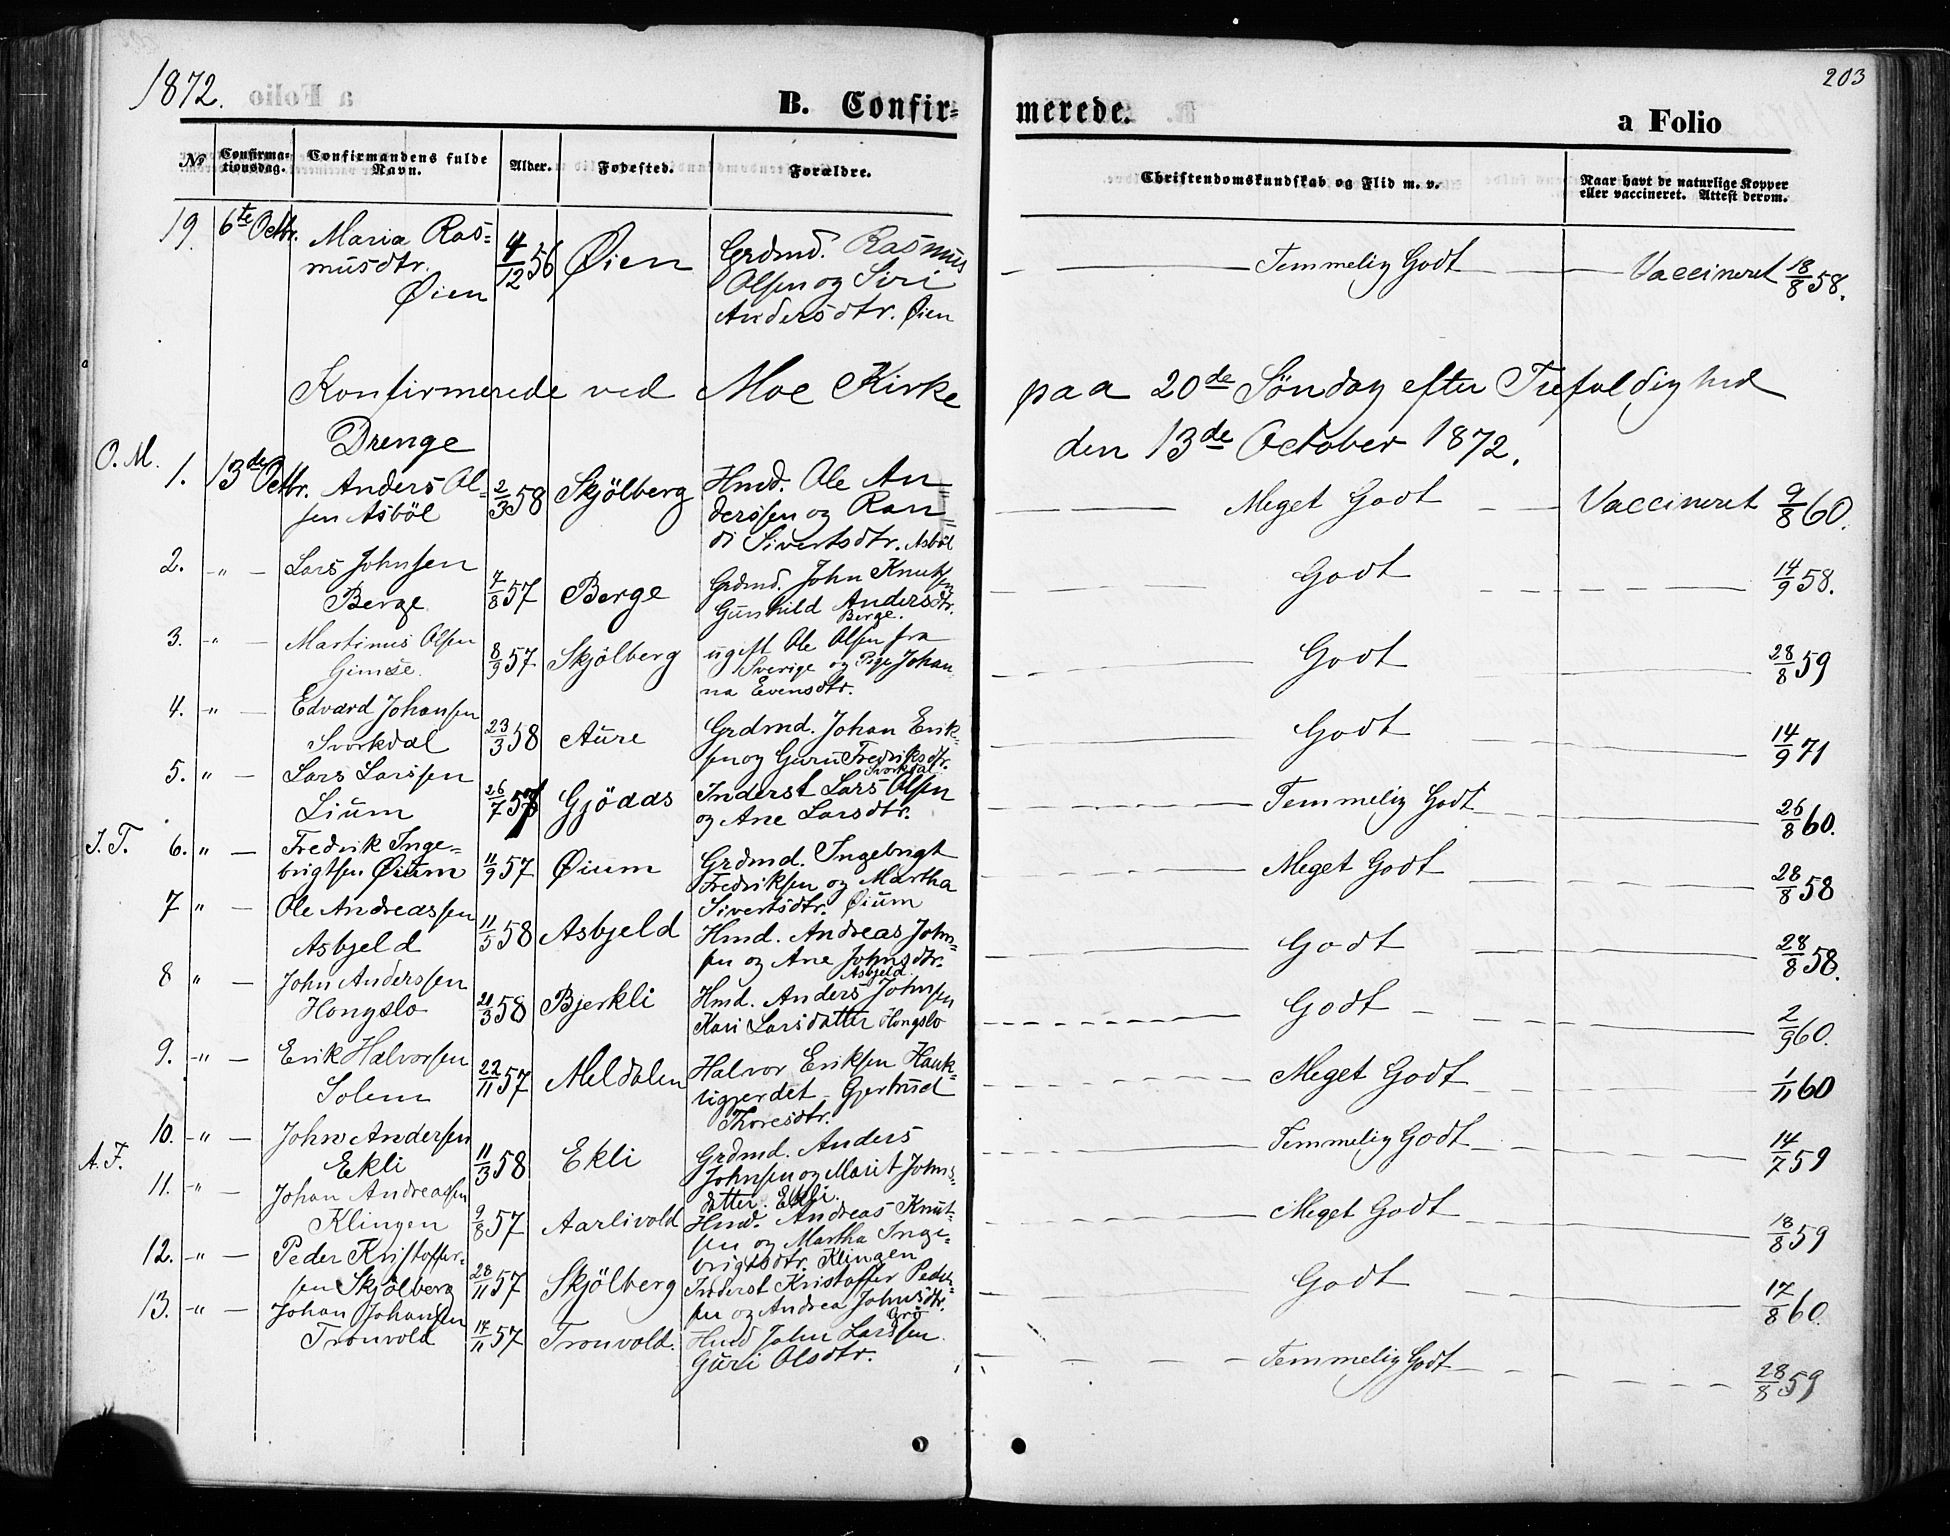 1872.
203
B. Confir-
merede.
a Folio
No
Confirma-
tionsdag.
Confirmandens fulde
Navn.
Alder.
Fødested.
Forældre.
Christendomskundskab og Flid m. v.
Naar havt de naturlige Kopper
eller vaccineret. Attest derom.
19. 6te Octbr. Maria Ras= 4/12 56 Øien Grdmd. Rasmus
musdtr. Olsen og Siri
Øien Andersdtr. Øien
Temmelig Godt Vaccineret 18/8 58.
Konfirmerede ved Moe Kirke paa 20de Søndag efter Trefoldighed
Drenge den 13de October 1872.
O. M. 1. 13de Octbr. Anders Ol= 2/3 58 Skjölberg Hmd. Ole An=
sen Asböl derssen og Ran=
di Sivertsdtr. Asböl
Meget Godt Vaccineret 9/8 60.
2. -"- Lars Johnsen 7/8 57 Berge Grdmd. John Knutsen
Berge Gunhild Andersdtr.
Berge.
Godt 14/9 58.
3. -"- Martinus Olsen 8/9 57 Skjölberg ugift Ole Olsen fra
Gimse. Sverige og Pige Johan
na Evensdtr.
Godt 28/8 59
4. -"- Edvard Johansen 23/3 58 Aure Grdmd. Johan Erik-
Svorkdal sen og Guru Fredriksdtr.
Svorkdal
Godt 14/9 71
5. " - Lars Larssen 26/7 57 Gjöaas Inderst Lars Olsen
Lium og Ane Larsdtr.
Temmelig Godt 26/8 60.
I. T. 6. " - Fredrik Inge= 11/9 57 Øium Grdmd. Ingebrigt
brigtsen Øium Fredriksen og Martha
Sivertsdtr. Øium
Meget Godt 28/8 58
7 " - Ole Andreassen 11/5 58 Asbjeld Hmd. Andreas John=
Asbjeld sen og Ane Johnsdtr.
Asbjeld
Godt 28/8 58.
8 " - John Anderssen 21/3 58 Bjerkli Hmd. Anders Johnsen
Hongslo Kari Larsdatter Hongslo
Godt 2/9 60.
9. -"- Erik Halvorsen 22/11 57 Meldalen Halvor Eriksen Hauk-
Solem ligjerdet Gjertrud
Thoresdtr.
Meget Godt 1/11 60
10. -"- John Andersen 11/3 58 Ekli Grdmd. Anders
Ekli Johnsen og Marit Johns-
datter. Ekli.
Temmelig Godt 14/7 59
A. F.
11. -"- Johan Andreassen 9/8 57 Aarlivold Hmd. Andreas Knut-
Klingen sen og Martha Inge-
brigtsdtr. Klingen
Meget Godt 18/8 59
12. -"- Peder Kristoffer- 28/11 57 Skjölberg Inderst Kristoffer Peder-
sen Skjölberg sen og Andrea Johnsdtr.
Godt 17/8 60
13. -"- Johan Johansen 17/11 57 Tronvold. Hmd John Larssen.
Tronvold Guri Olsdtr.
Temmelig Godt 28/8 59